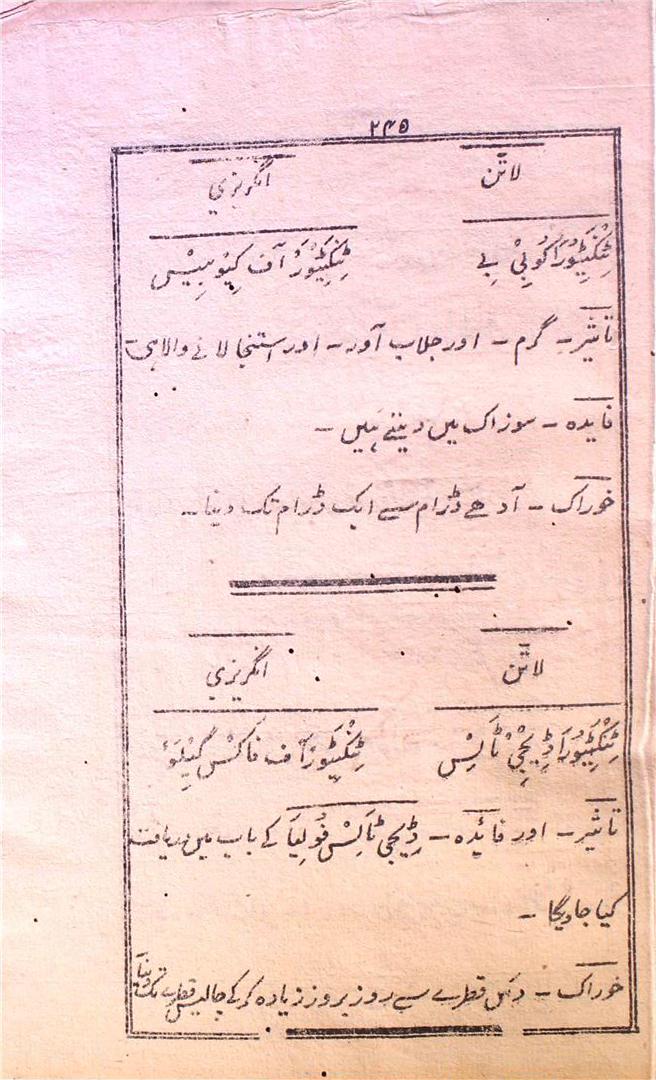 ۲۴۵
لاٹن انگریزی
ٹِنکْچَیُوْرَا کُوبِیْ بے ٹِنکْچَیُوْر آف کِیُوبِیْبس
تاثیر۔ گرم۔ اور جلاب آور۔ اور استنجا لانے والا ہی
فایدہ۔ سوزاک میں دیتے ہیں۔
خوراک۔ آدھے ڈرام سے ایک ڈرام تک دینا۔
لاٹن انگریزی
ٹِنکْچَیُوْرَا ڈِیجِیْ ٹَالِسْ ٹِنکْچَیُوْر آف فاکْسْ گِیْلَوْ
تاثیر۔ اور فائدہ۔ ڈِیجی ٹَالِسْ فُولِیَا کے باب میں دریافت
کیا جاویگا۔
خوراک۔ دس قطرے سے روز بروز زیادہ کرکے چالیس قطرے تک دینا